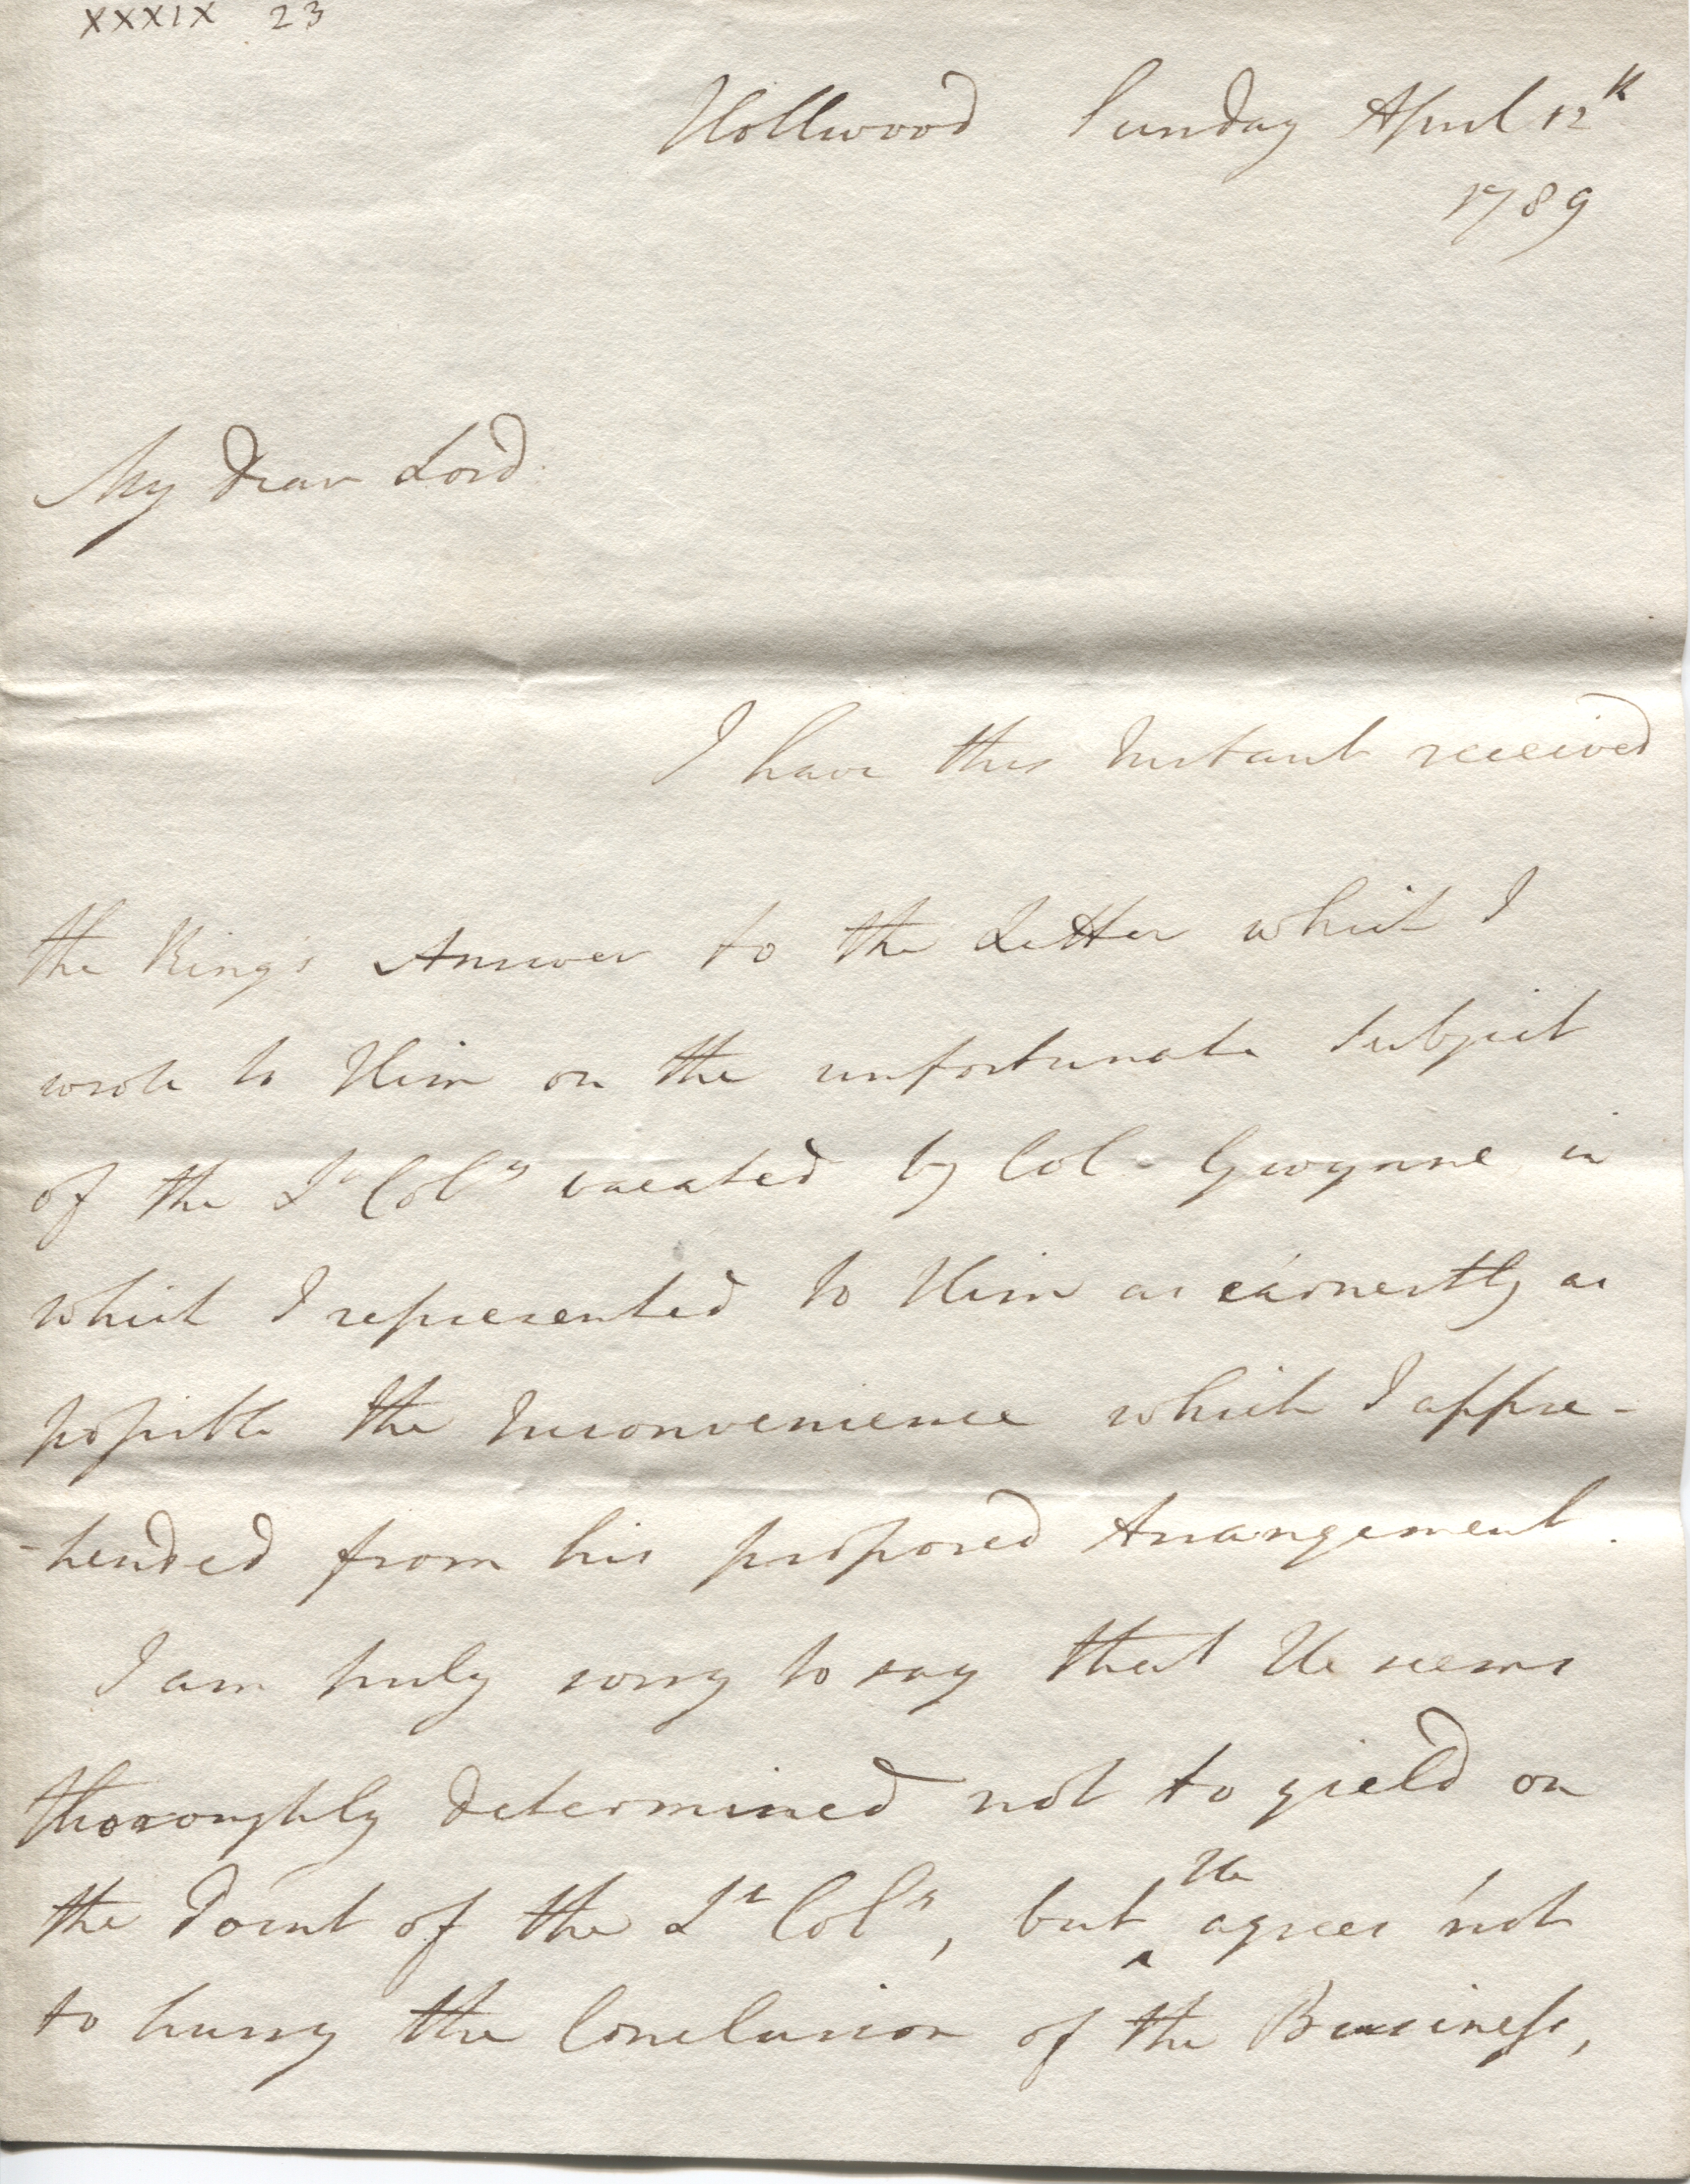 XXXIX 23
Hollwood Sunday April 12th
1789
My Dear Lord
I have this Instant received
the King's Answer to the Letter which I
wrote to Him on the unfortunate Subject
of the Lt Coly vacated by Col. Gwynne in
which I represented to Him as earnestly as
possible the Inconvenience which I appre-
-hended from his proposed Arrangement.
I am truly sorry to say that He seems
thoroughly determined not to yield on
the Point of the Lt Coly, but He agrees not
to hurry the Conclusion of the Business,